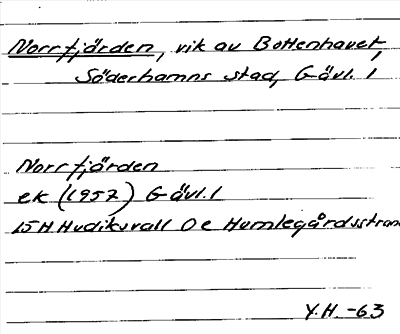 Norrfjärden, vik av Bottenhavet,
Söderhamns stad, Gävl. l
Norrfjärden
ek (1957) Gävl. l
15H Hudiksvall 0e Humlegårdsstran
Y.H. -63